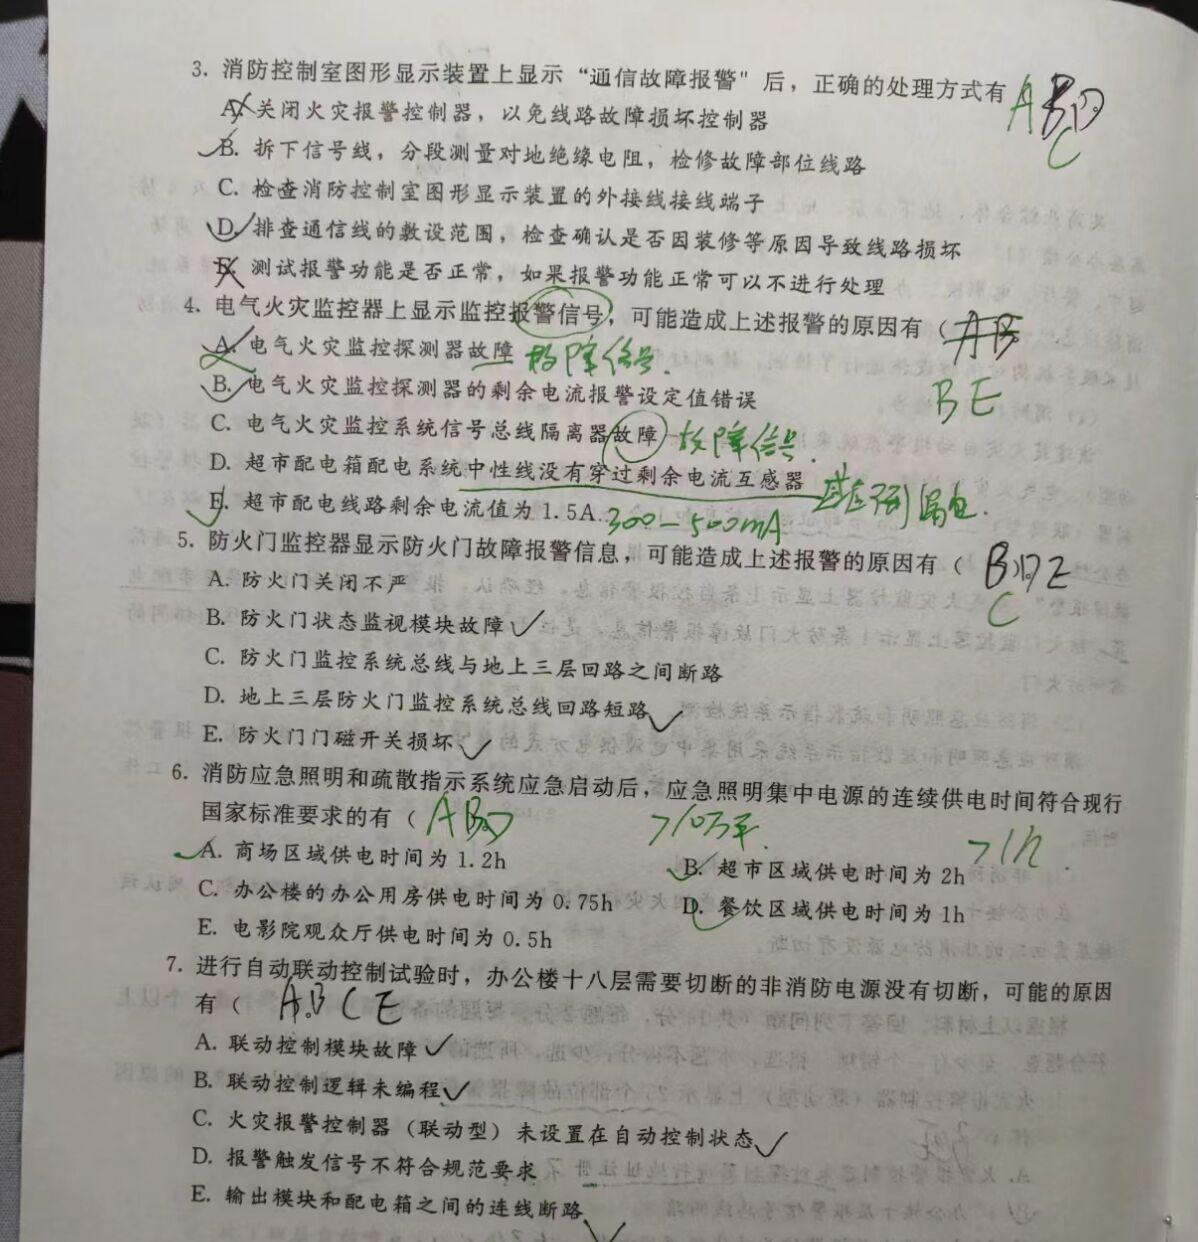 3. 消防控制室图形显示装置上显示“通信故障报警"后，正确的处理方式有
A. 关闭火灾报警控制器，以免线路故障损坏控制器
B. 拆下信号线，分段测量对地绝缘电阻，检修故障部位线路
C
C. 检查消防控制室图形显示装置的外接线接线端子
D. 排查通信线的敷设范围，检查确认是否因装修等原因导致线路损坏
E. 测试报警功能是否正常，如果报警功能正常可以不进行处理
4. 电气火灾监控器上显示监控报警信号，可能造成上述报警的原因有（ AB
A. 电气火灾监控探测器故障 故障信号.
B. 电气火灾监控探测器的剩余电流报警设定值错误
BE
C. 电气火灾监控系统信号总线隔离器故障 故障信号.
D. 超市配电箱配电系统中性线没有穿过剩余电流互感器
E. 超市配电线路剩余电流值为 1.5A 300-500mA
5. 防火门监控器显示防火门故障报警信息，可能造成上述报警的原因有（ BDE
C
A. 防火门关闭不严
B. 防火门状态监视模块故障
C. 防火门监控系统总线与地上三层回路之间断路
D. 地上三层防火门监控系统总线回路短路
E. 防火门门磁开关损坏
6. 消防应急照明和疏散指示系统应急启动后，应急照明集中电源的连续供电时间符合现行
国家标准要求的有（ ABD
>10万平. >1h.
A. 商场区域供电时间为 1.2h
B. 超市区域供电时间为 2h
C. 办公楼的办公用房供电时间为 0.75h
D. 餐饮区域供电时间为 1h
E. 电影院观众厅供电时间为 0.5h
7. 进行自动联动控制试验时，办公楼十八层需要切断的非消防电源没有切断，可能的原因
有（ ABCE
A. 联动控制模块故障
B. 联动控制逻辑未编程
C. 火灾报警控制器（联动型）未设置在自动控制状态
D. 报警触发信号不符合规范要求
E. 输出模块和配电箱之间的连线断路